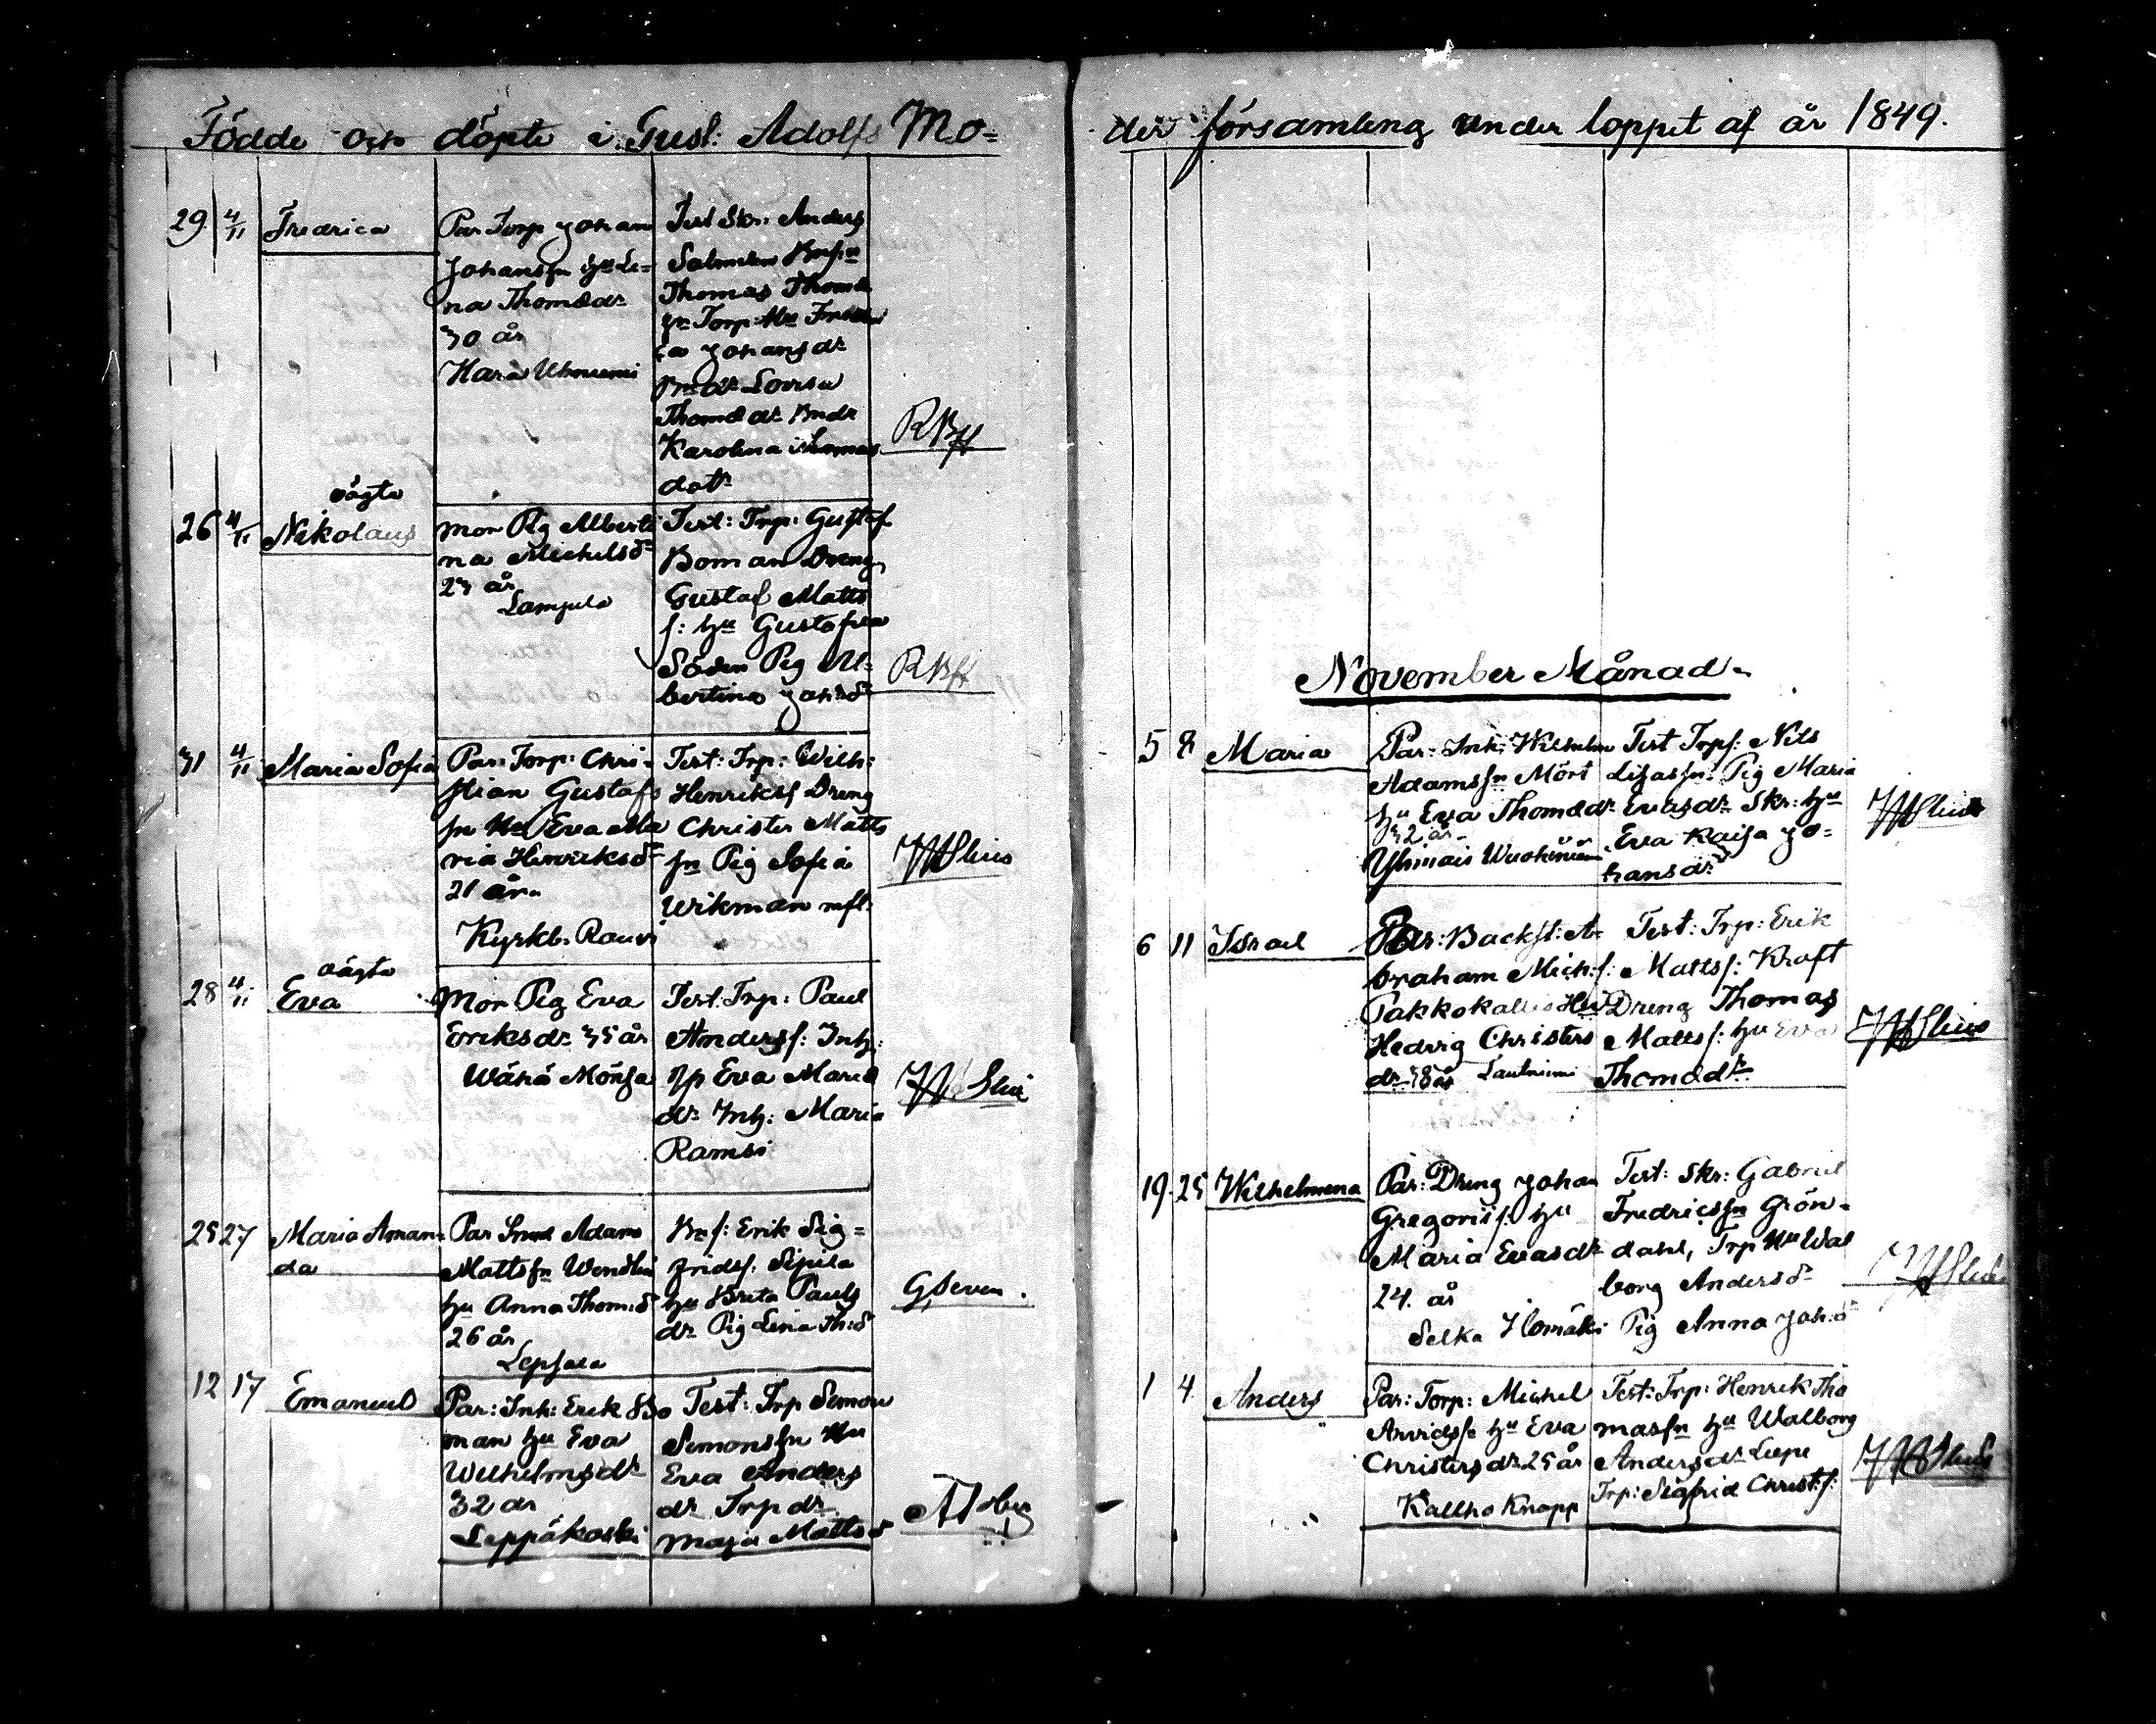 Födde och döpte i Gust: Adolfs Mo=
der församling under loppet af år 1849.
29. 4/11 Fredrica
Par Torp Johan
Johansfn Hu Le=
na Thomsdr
30 år
Test Skr: Anders
Salmelen Bnfn
Thomas Thoms
fn Torp: Hu Fredri
ca Johansdr
Bndr Lovisa
Thomsdr Bndr
Karolina Thomas
dotr
RBff
oägta
26 4/11 Nikolaus
Mor Pig Alberti
na Michelsdr
23 år
Lampula
Test: Trp: Gustaf
Boman Dreng
Gustaf Matts
f: Hu Gustafva
Söder Pig Al=
bertina Johsdr
RBff
31 4/11 Maria Sofia
Par: Torp: Chri=
stian Gustafs
fn Hu Eva Ma
ria Henriksdr
21 år.
Kyrkb. Rauvi
Test: Trp: Wilh:
Henriksf Dreng
Christer Matts
fn Pig Sofia
Wikman
oägta
28 4/11 Eva
Mor Pig Eva
Eriksdr 35 år
Wähä Mönga
Test: Trp: Paul
Andersf: Inh:
Eva Maria
dr Inh: Maria
Ramsi
25 27 Maria Aman=
da
Par Adam
Mattsfn
hu Anna Thom:d
26 år
Bnf: Erik Sig=
fridsf: Sipila
hu Brita Pauls
dr Pig Lena Th:d
12 17 Emanuel
Par: Inh: Erik Bo
man hu Eva
Wilhelmsdr
32 år
Leppäkoski
Test: Trp Simon
Simonsfn Hu
Eva Anders
dr Trp dr
Maja Mattsd
November Månad.
5 8 Maria
Par: Inh: Wilhelm
Adamsfn Mört
hu Eva Thomsdr
32 år.
Test Trpf: Nils
Lisasfn: Pig Maria
Evasdr Skr: hu
Eva Kaisa Jo=
hansdr
6 11 Israel
Par: Backst: A=
braham Mich:f:
Pakkokallio Hu
Hedvig Christers
dr 38 år Lautniemi
Test: Trp: Erik
Mattsf: Kraft
Dreng Thomas
Mattsf: hu Eva
Thomsdr
19. 25 Wilhelmina
Par: Dreng Johan
Gregoriif: hu
Maria Evasdr
24. år
Selka Ilomäki
Test: Skr: Gabriel
Fredricsfn Grön=
dahl, Trp Hu Wal
borg Andersd
Pig Anna Joh:d
1 4 Anders
Par: Torp: Michel
Arvidsf: hu Eva
Christersdr 25 år
Kallho Knapp
Test: Trp: Henrik Tho
masfn hu Walborg
Andersdr Leepe
Trp: Sigfrid Christ:f: